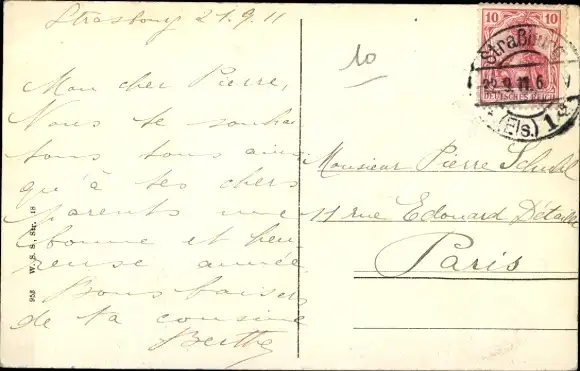 Strasbourg 21.9.11
Mon cher Pierre,
Nous te souhai
tons tous ainsi
qu'à tes chers
parents une
bonne et heu
reuse année.
Bons baisers
de ta cousine
Berthe
953 W. S. S., Str. 18
10
10 10
DEUTSCHES REICH
Straßburg
22.9.11.6
(Els.) 1
Monsieur Pierre
11 rue Edouard Détaille
Paris